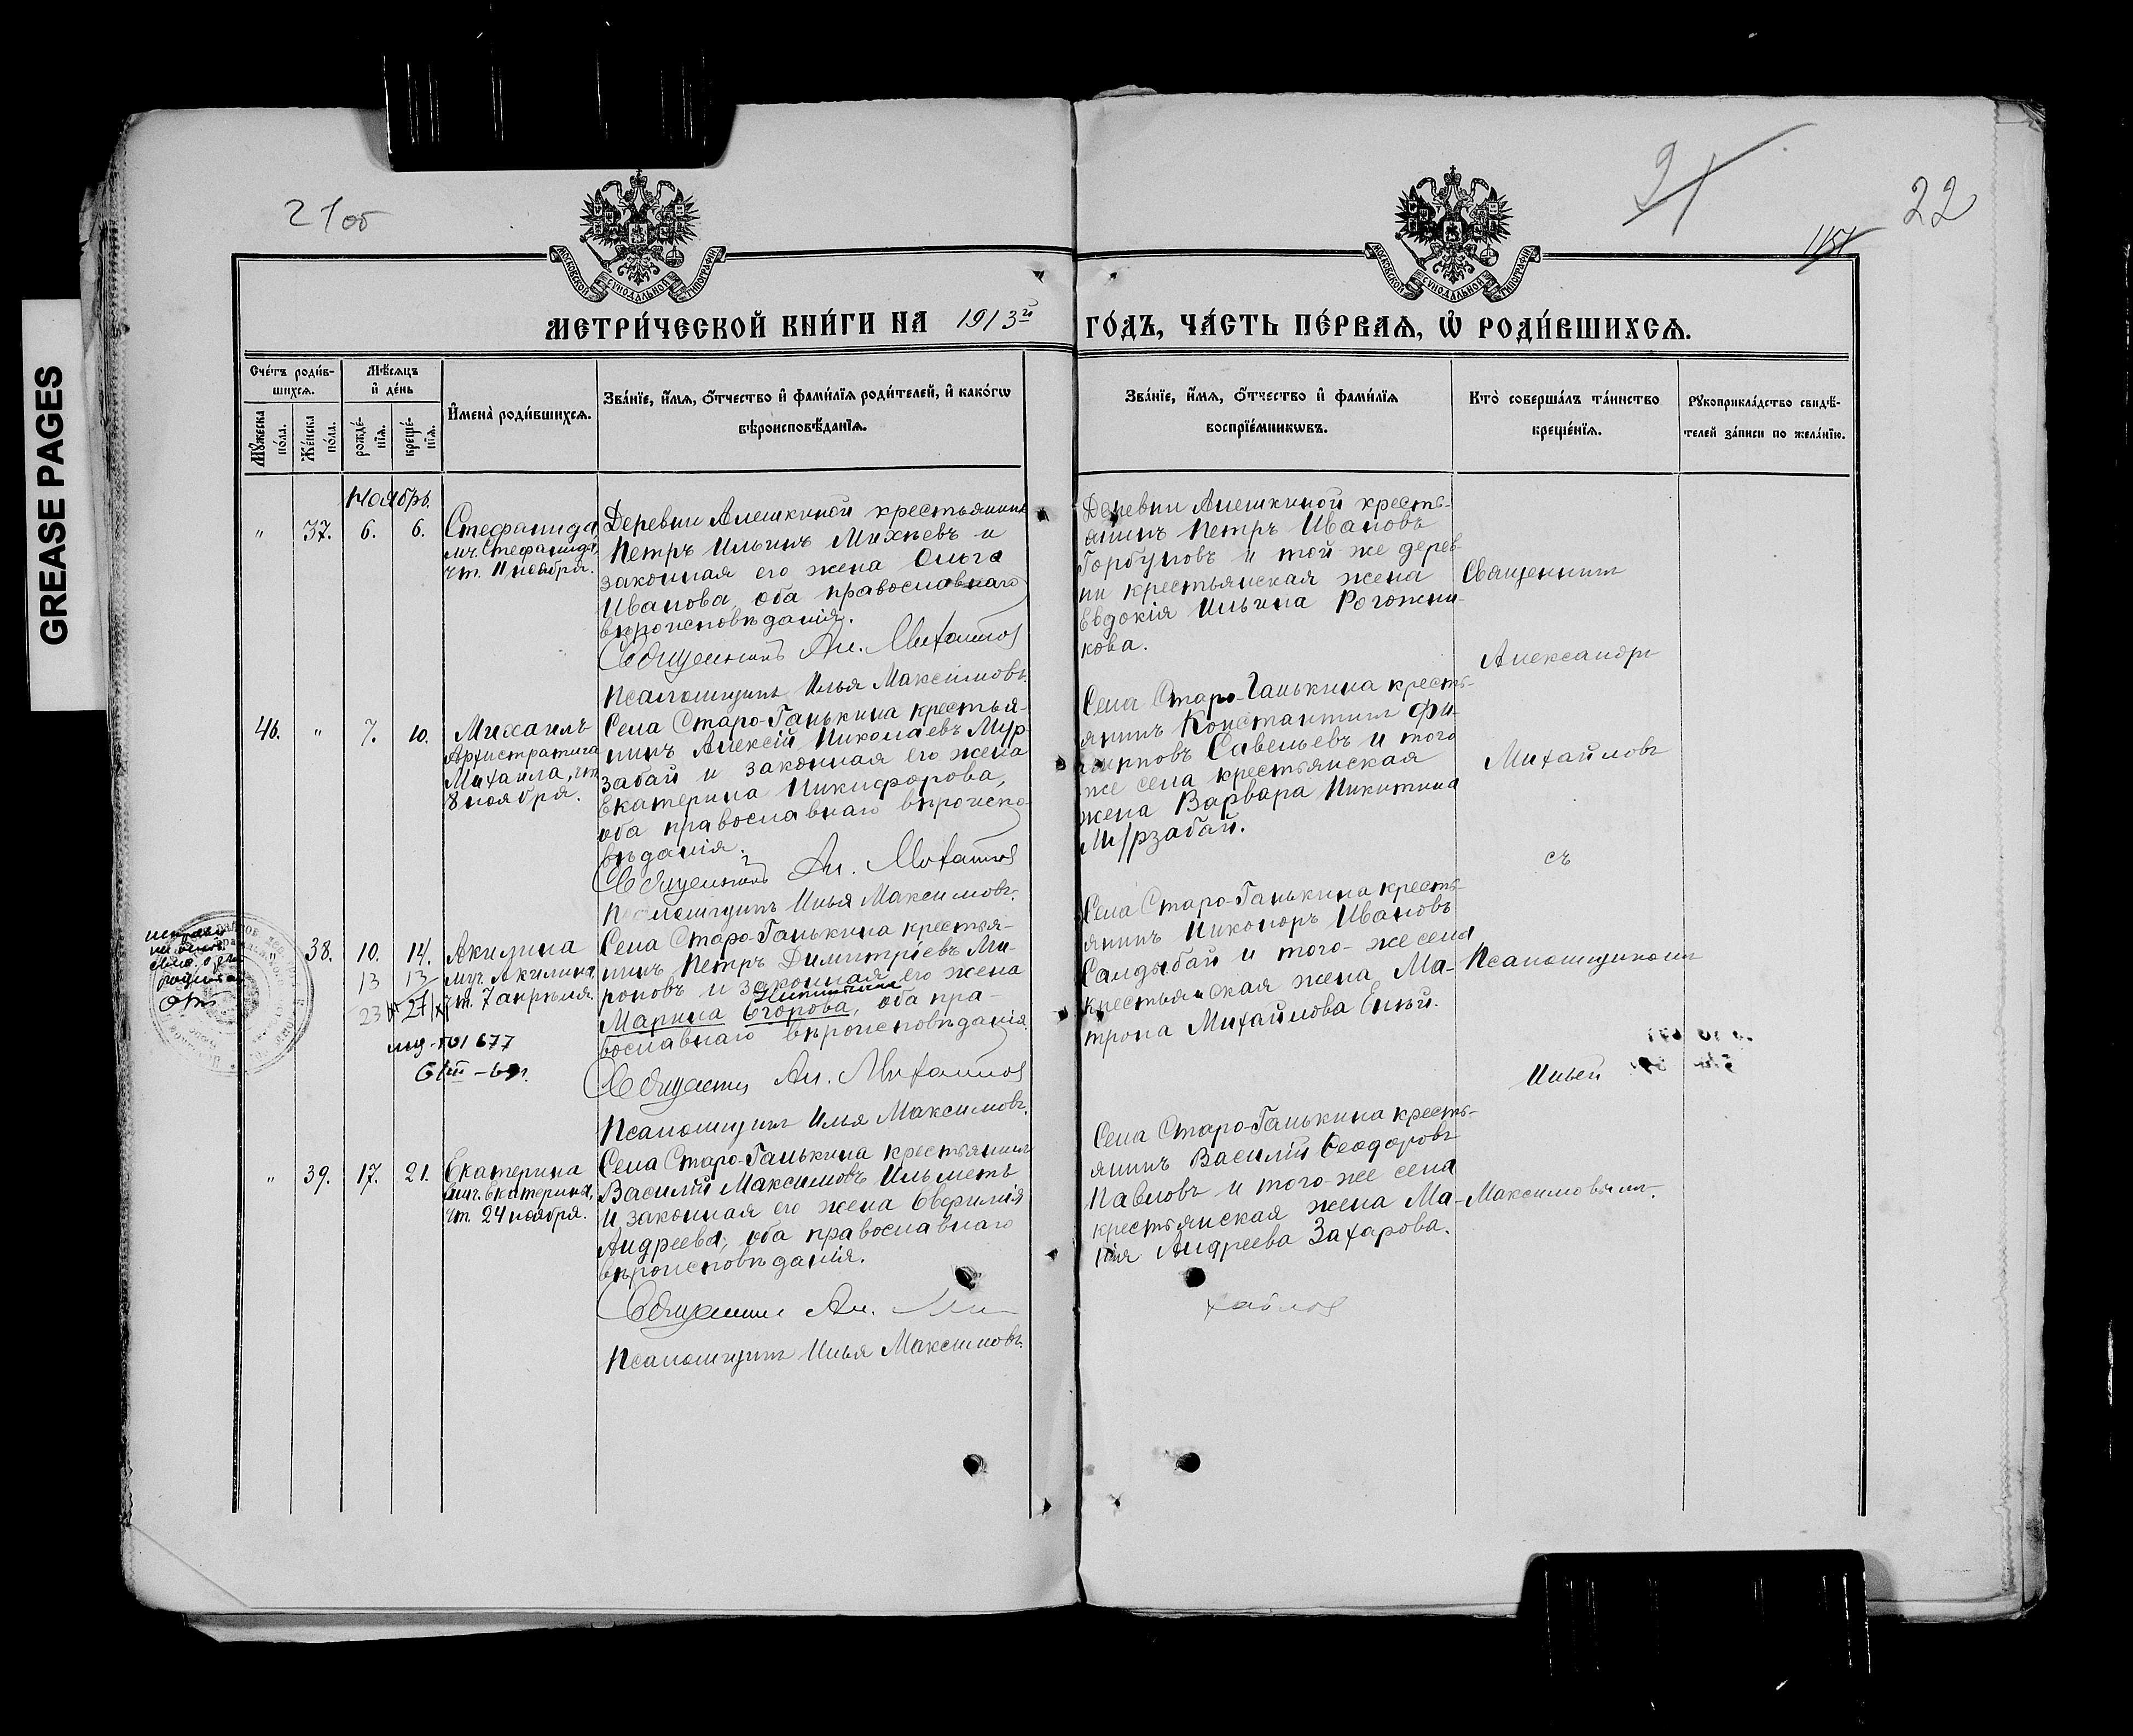 GREASE PAGES
21об
21
22
1151
МОСКОВСКОЙ СѴНОДАЛЬНОЙ ТИПОГРАФІИ
МОСКОВСКОЙ СѴНОДАЛЬНОЙ ТИПОГРАФІИ
МЕТРИ́ЧЕСКОЙ КНИ́ГИ НА 1913й ГО́ДЪ, ЧА́СТЬ ПЕ́РВАѦ, Ѡ РОДИ́ВШИХСѦ.
Сче́тъ роди́в-
шихсѧ.
Мꙋ́жеска по́ла.
Же́нска по́ла.
Мѣ́сѧцъ
и҆ де́нь
рожде́-
нїѧ.
креще́-
нїѧ.
И҆мена̀ роди́вшихсѧ.
Зва́нїе, и҆́мѧ, ѻ҆́тчество и҆ фами́лїѧ роди́телей, и҆ како́гѡ
вѣроисповѣ́данїѧ.
Зва́нїе, и҆́мѧ, ѻ҆́тчество и҆ фами́лїѧ
воспрїе́мникѡвъ.
Кто̀ соверша́лъ та́инство
креще́нїѧ.
Рꙋкоприкла́дство свидѣ́-
телей за́писи по жела́нїю.
Ноябрь.
" 37. 6. 6.
Стефанида,
мч. Стефанида,
чт. 11 ноября.
Деревни Алешкиной крестьянинъ
Петръ Ильинъ Михѣевъ и
законная его жена Ольга
Иванова, оба православнаго
вѣроисповѣданія.
Священникъ Ал. Михайлов
Псаломщикъ Илья Максимовъ.
Деревни Алешкиной кресть-
янинъ Петръ Ивановъ
Горбуновъ и той-же дерев-
ни крестьянская жена
Евдокія Ильина Рогожни-
кова.
Священникъ
Александръ
Михайловъ
съ
Псаломщикомъ
Ильей
Максимовымъ.
46. " 7. 10.
Михаилъ
Архистратига
Михаила, чт.
8 ноября.
Села Старо-Ганькина крестья-
нинъ Алексій Николаевъ Мур-
забай и законная его жена
Екатерина Никифорова,
оба православнаго вѣроиспо-
вѣданія.
Священникъ Ал. Михайлов
Псаломщикъ Илья Максимовъ.
Села Старо-Ганькина кресть-
янинъ Константинъ Фи-
липповъ Савельевъ и того
же села крестьянская
жена Варвара Никитина
Мурзабай.
" 38. 10. 14.
13 13
23 27
Акилина
муч. Акилина,
чт. 7 апрѣля.
Села Старо-Ганькина крестья-
нинъ Петръ Димитріевъ Ми-
роновъ и законная его жена
Никитина
Марина Егорова, оба пра-
вославнаго вѣроисповѣданія.
Священникъ Ал. Михайлов
Псаломщикъ Илья Максимовъ.
Села Старо-Ганькина кресть-
янинъ Никоноръ Ивановъ
Салдыбай и того-же села
крестьянская жена Ма-
трона Михайлова Елѣй.
" 39. 17. 21.
Екатерина
вмч. Екатерина,
чт. 24 ноября.
Села Старо-Ганькина крестьянинъ
Василій Максимовъ Ильметь
и законная его жена Евфимія
Андреева, оба православнаго
вѣроисповѣданія.
Священникъ Ал. Ми-
хайлов
Псаломщикъ Илья Максимовъ.
Села Старо-Ганькина кресть-
янинъ Василій Ѳеодоровъ
Павловъ и того-же села
крестьянская жена Ма-
рія Андреева Захарова.